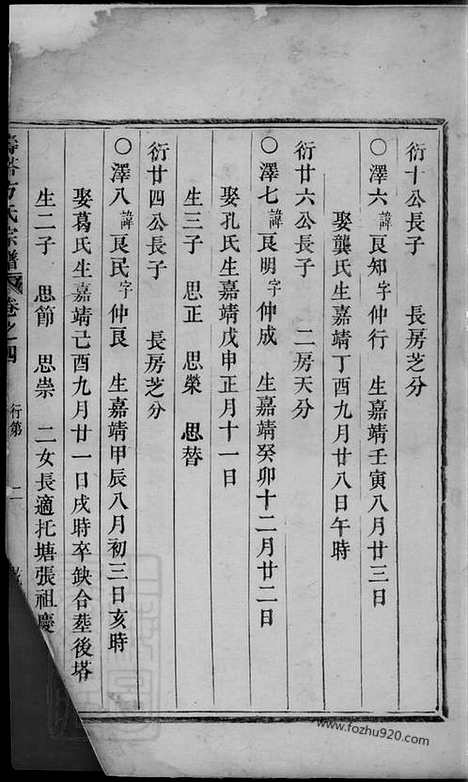 衍十公長子　長房芝分
〇澤六諱良知字仲行　生嘉靖壬寅八月廿三日
娶龔氏生嘉靖丁酉九月廿八日午時
衍廿六公長子　二房天分
〇澤七諱良明字仲成　生嘉靖癸卯十二月廿二日
娶孔氏生嘉靖戊申正月十一日
生三子　思正　思榮　思替
衍廿四公長子　長房芝分
〇澤八諱良民字仲良　生嘉靖甲辰八月初三日亥時
娶葛氏生嘉靖己酉九月廿一日戌時卒缺合塟後塔
生二子　思節　思崇　二女長適托塘張祖慶
方氏宗譜　卷之四　行第　二
www.fozhu920.com